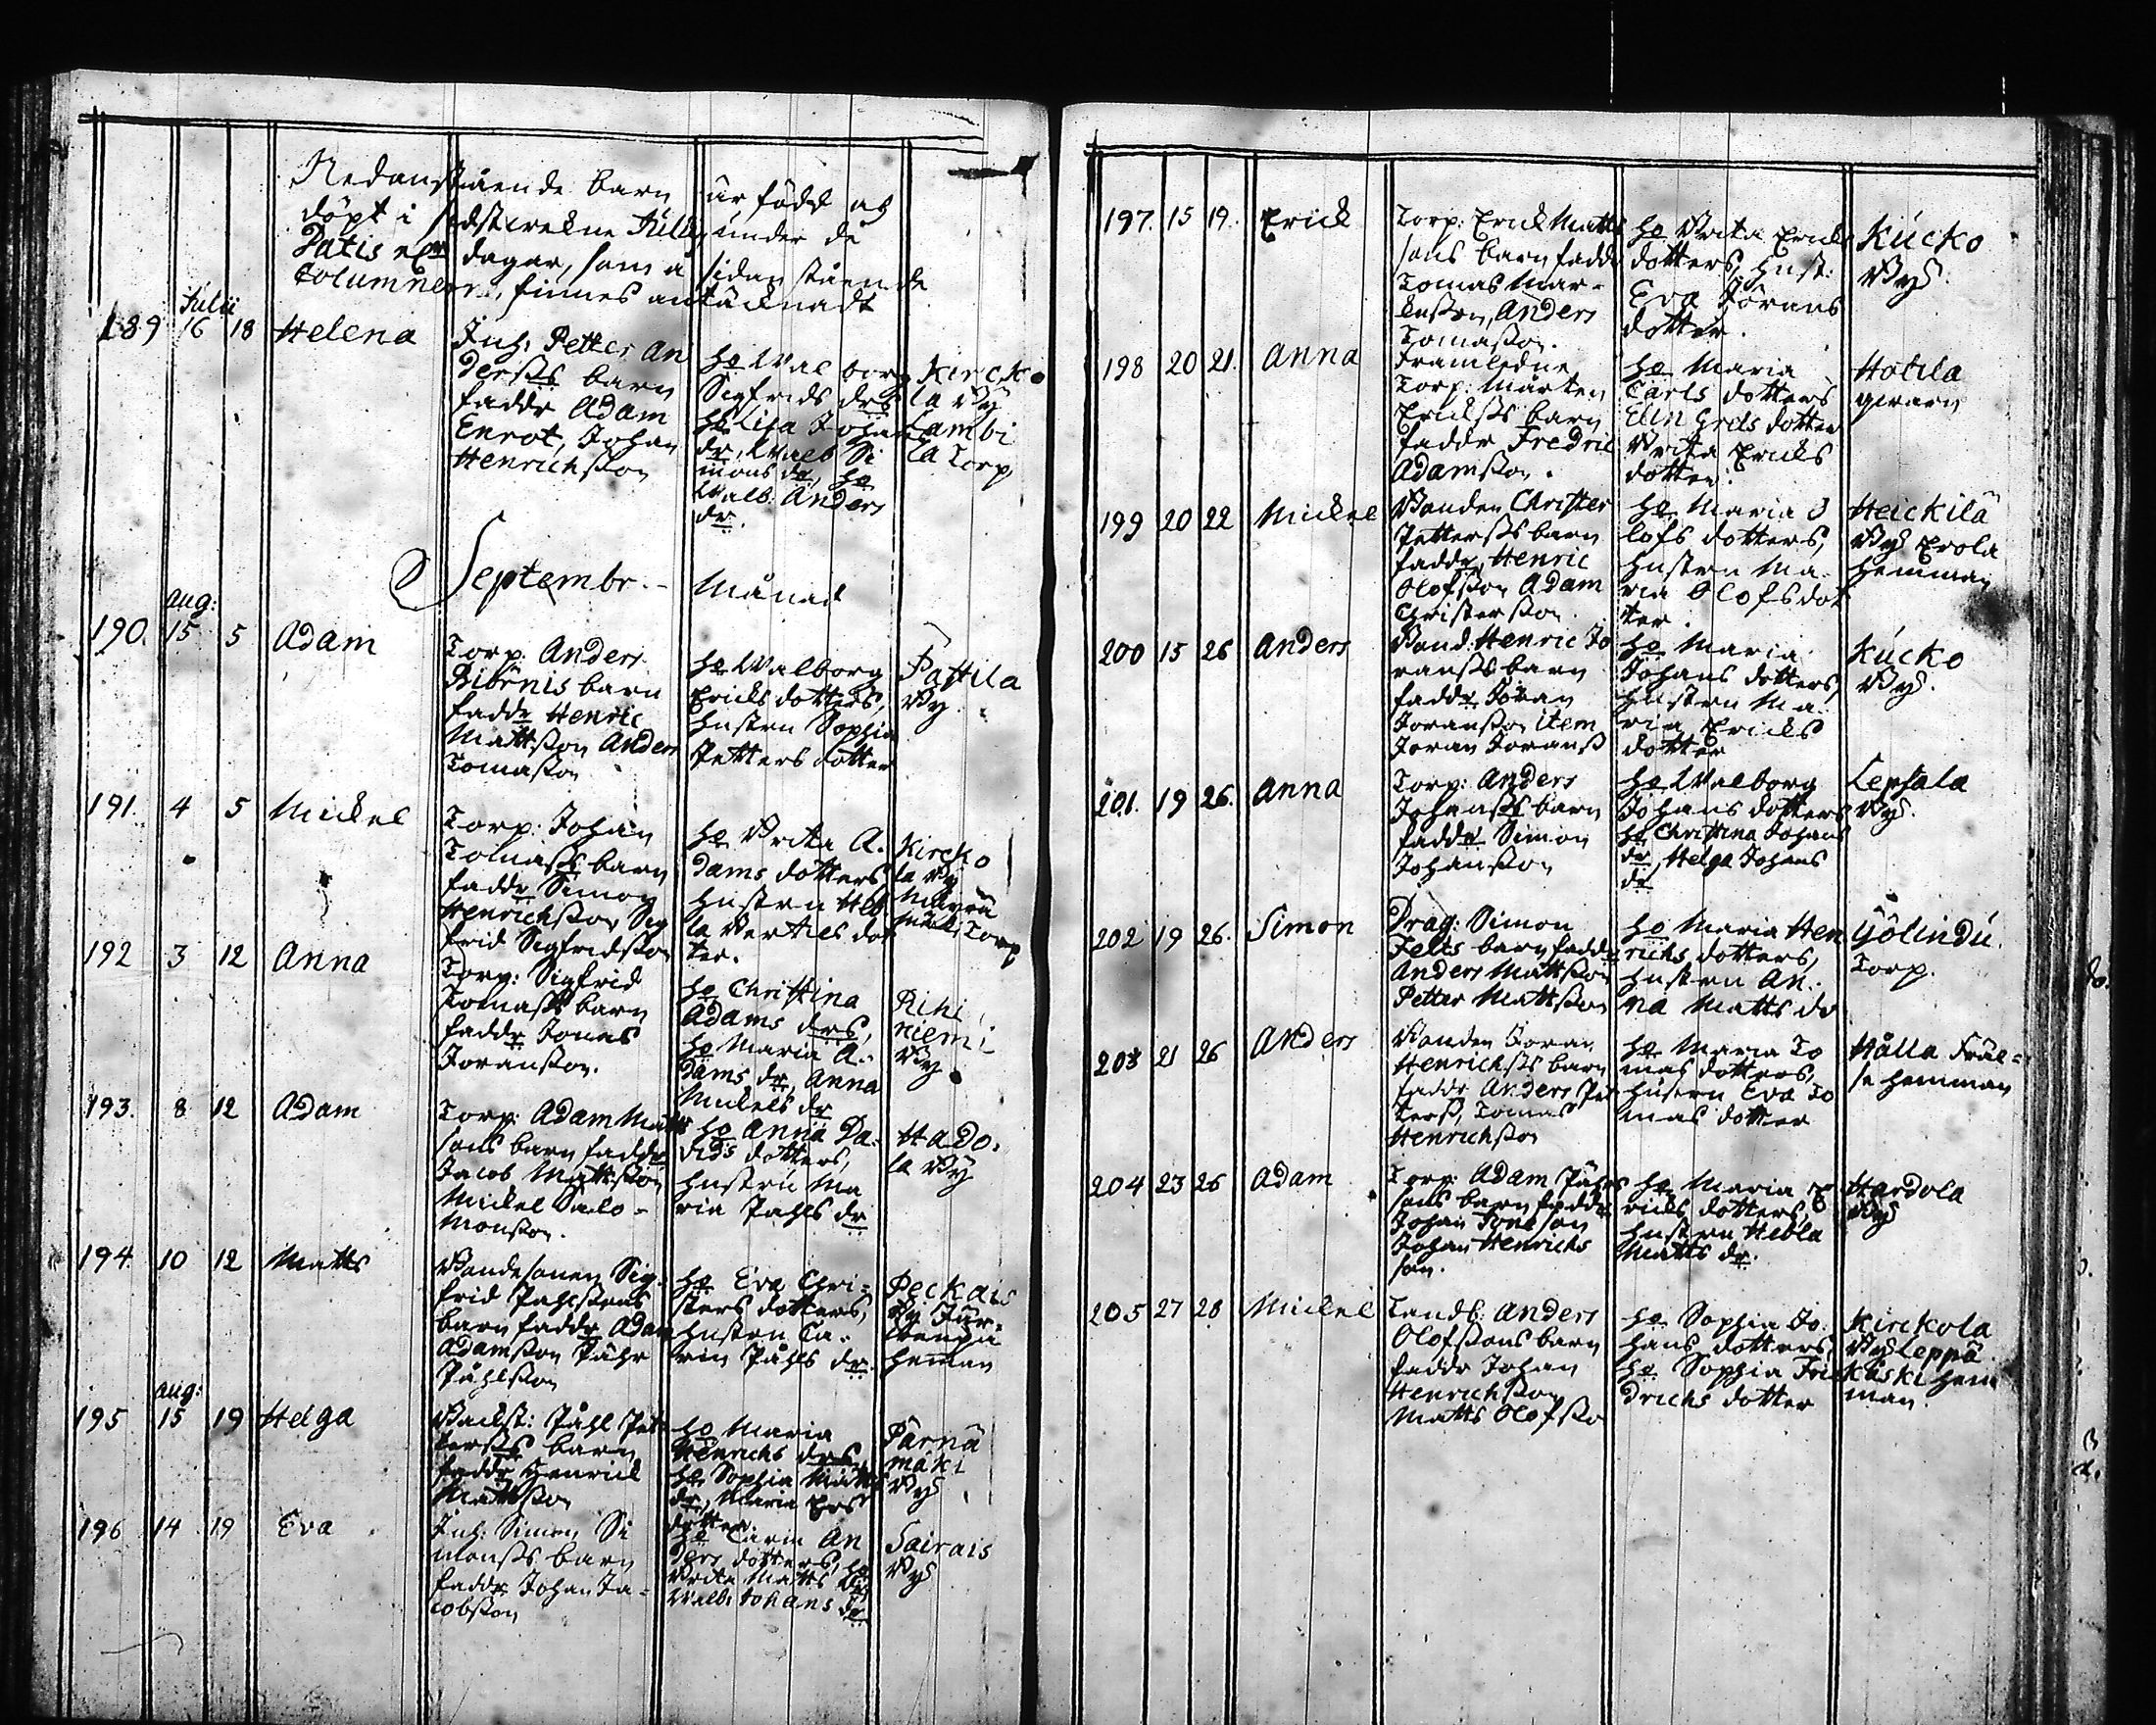 Nedanstående barn är född och
döpt i sidstwekne Julii under de
Datis el:r dagar, som å sidan stående
Columner, finnes antäcknadt
Julii
189 16 18 Helena
Inh: Petter An
derss:s barn
faddr Adam
Enrot, Johan
Henrichsson
H:o Walborg
Sigfrids drs
H:o Lisa Johans
dr, Walb Si
mons dr, H:o
Walb: Anders
dr.
Kircko
la By
Lambi
la Torp
Septembr. Månad
aug:
190. 15 5 Adam
Torp. Anders
Biörnis barn
faddr Henric
Mattsson Anders
Tomasson
H:o Walborg
Ericks dotters,
hustru Sophia
Petters dotter
Pattila
By.
191. 4 5 Mickel
Torp: Johan
Tomass:s barn
faddr Simon
Henrichsson Sig
frid Sigfridsson
H:o Brita A.
dams dotters
hustru Heb
la Bertils dot
ter.
Kircko
la By
Torp
192 3 12 Anna
Torp: Sigfrid
Tomass:s barn
faddr Jonas
Joransson.
H:o Christina
Adams drs,
H:o Maria A.
dams dr, Anna
Mickels dr
Rihi
niemi
By
193. 8 12 Adam
Torp: Adam Matts
sons barn faddr
Jacob Mattsson
Mickel Salo-
monsson.
H:o Anna Da.
vids dotters,
hustru Ma
ria Pahls dr
Hado.
la By
194. 10 12 Matts
Bondesonen Sig.
frid Pahlssons
barn faddr Adam
Adamsson Påhr
Påhlsson
H:o Eva Chri-
sters dotters,
hustru Ca.
rin Påhls dr.
Peckais
By
heman
aug:
195 15 19 Helga
Backst: Påhl Pet
terss:s barn
faddr Henrick
Mattsson
H:o Maria
Henrichs drs
H:o Sophia Matts
dr, Maria Ers
dotter
Pärnä
mäki
By
196 14 19 Eva
Inh: Simon Si
monss:s barn
faddr Johan Ja-
cobsson
H:o Carin An
ders dotters, H:o
Brita Matts dr
Walb: Johans dr
Sairais
By
197. 15 19. Erick
Torp: Erick Matts
sons barn faddr
Tomas Mar-
cusson, Anders
Tomasson.
H:o Brita Ericks
dotters, Hust:
Eva Jörans
dotter.
Kúcko
By.
198 20 21. Anna
Framledne
Torp: Mårten
Erickss:s barn
faddr Fredric
Adamsson.
H:o Maria
Carls dotters
Elin Grels dotter
Brita Ericks
dotter.
Hotila
qwarn
199 20 22 Mickel
Bonden Christer
Petterss:s barn
faddr, Henric
Olofsson Adam
Christersson
H:o Maria O
lofs dotters,
hustru Ma.
ria Olofsdot
ter.
Heickilä
By Erola
hemman
200 15 26 Anders
Bond: Henric Jo
ranss:s barn
faddr Joran
Joransson item
Joran Joranss
H:o Maria
Johans dotters
hustru Ma.
ria Ericks
dotter
Kúcko
By.
201. 19 26. Anna
Torp: Anders
Johanss:s barn
faddr Simon
Johansson
H:o Walborg
Johans dotters
H:o Christina Johans
dr, Helga Johans
dr
Lepsala
By.
202 19 26. Simon
Drag: Simon
Felts barn faddr
Anders Mattsson
Petter Mattsson
H:o Maria Hen
richs dotters,
hustru An.
na Matts dr
Gölindú.
Torp.
203 21 26 Anders
Bonden Joran
Henrichss:s barn
faddr Anders Pet
terss, Tomas
Henrichsson
H:o Maria To
mas dotters,
hustru Eva To
mas dotter
Hålla Fräl-
se hemman
204 23 26 Adam
Torp: Adam Påhrs
sons barn faddr
Johan Jonsson
Johan Henrichs
son.
H:o Maria E
ricks dotters,
hustru Hebla
Matts dr.
Hardola
By
205 27 28 Mickel
Landb: Anders
Olofssons barn
faddr Johan
Henrichsson
Matts Olofsso
H:o Sophia Jo.
hans dotters,
H:o Sophia Frie
drichs dotter
Kirckola
By Leppä
kåski hem
man.